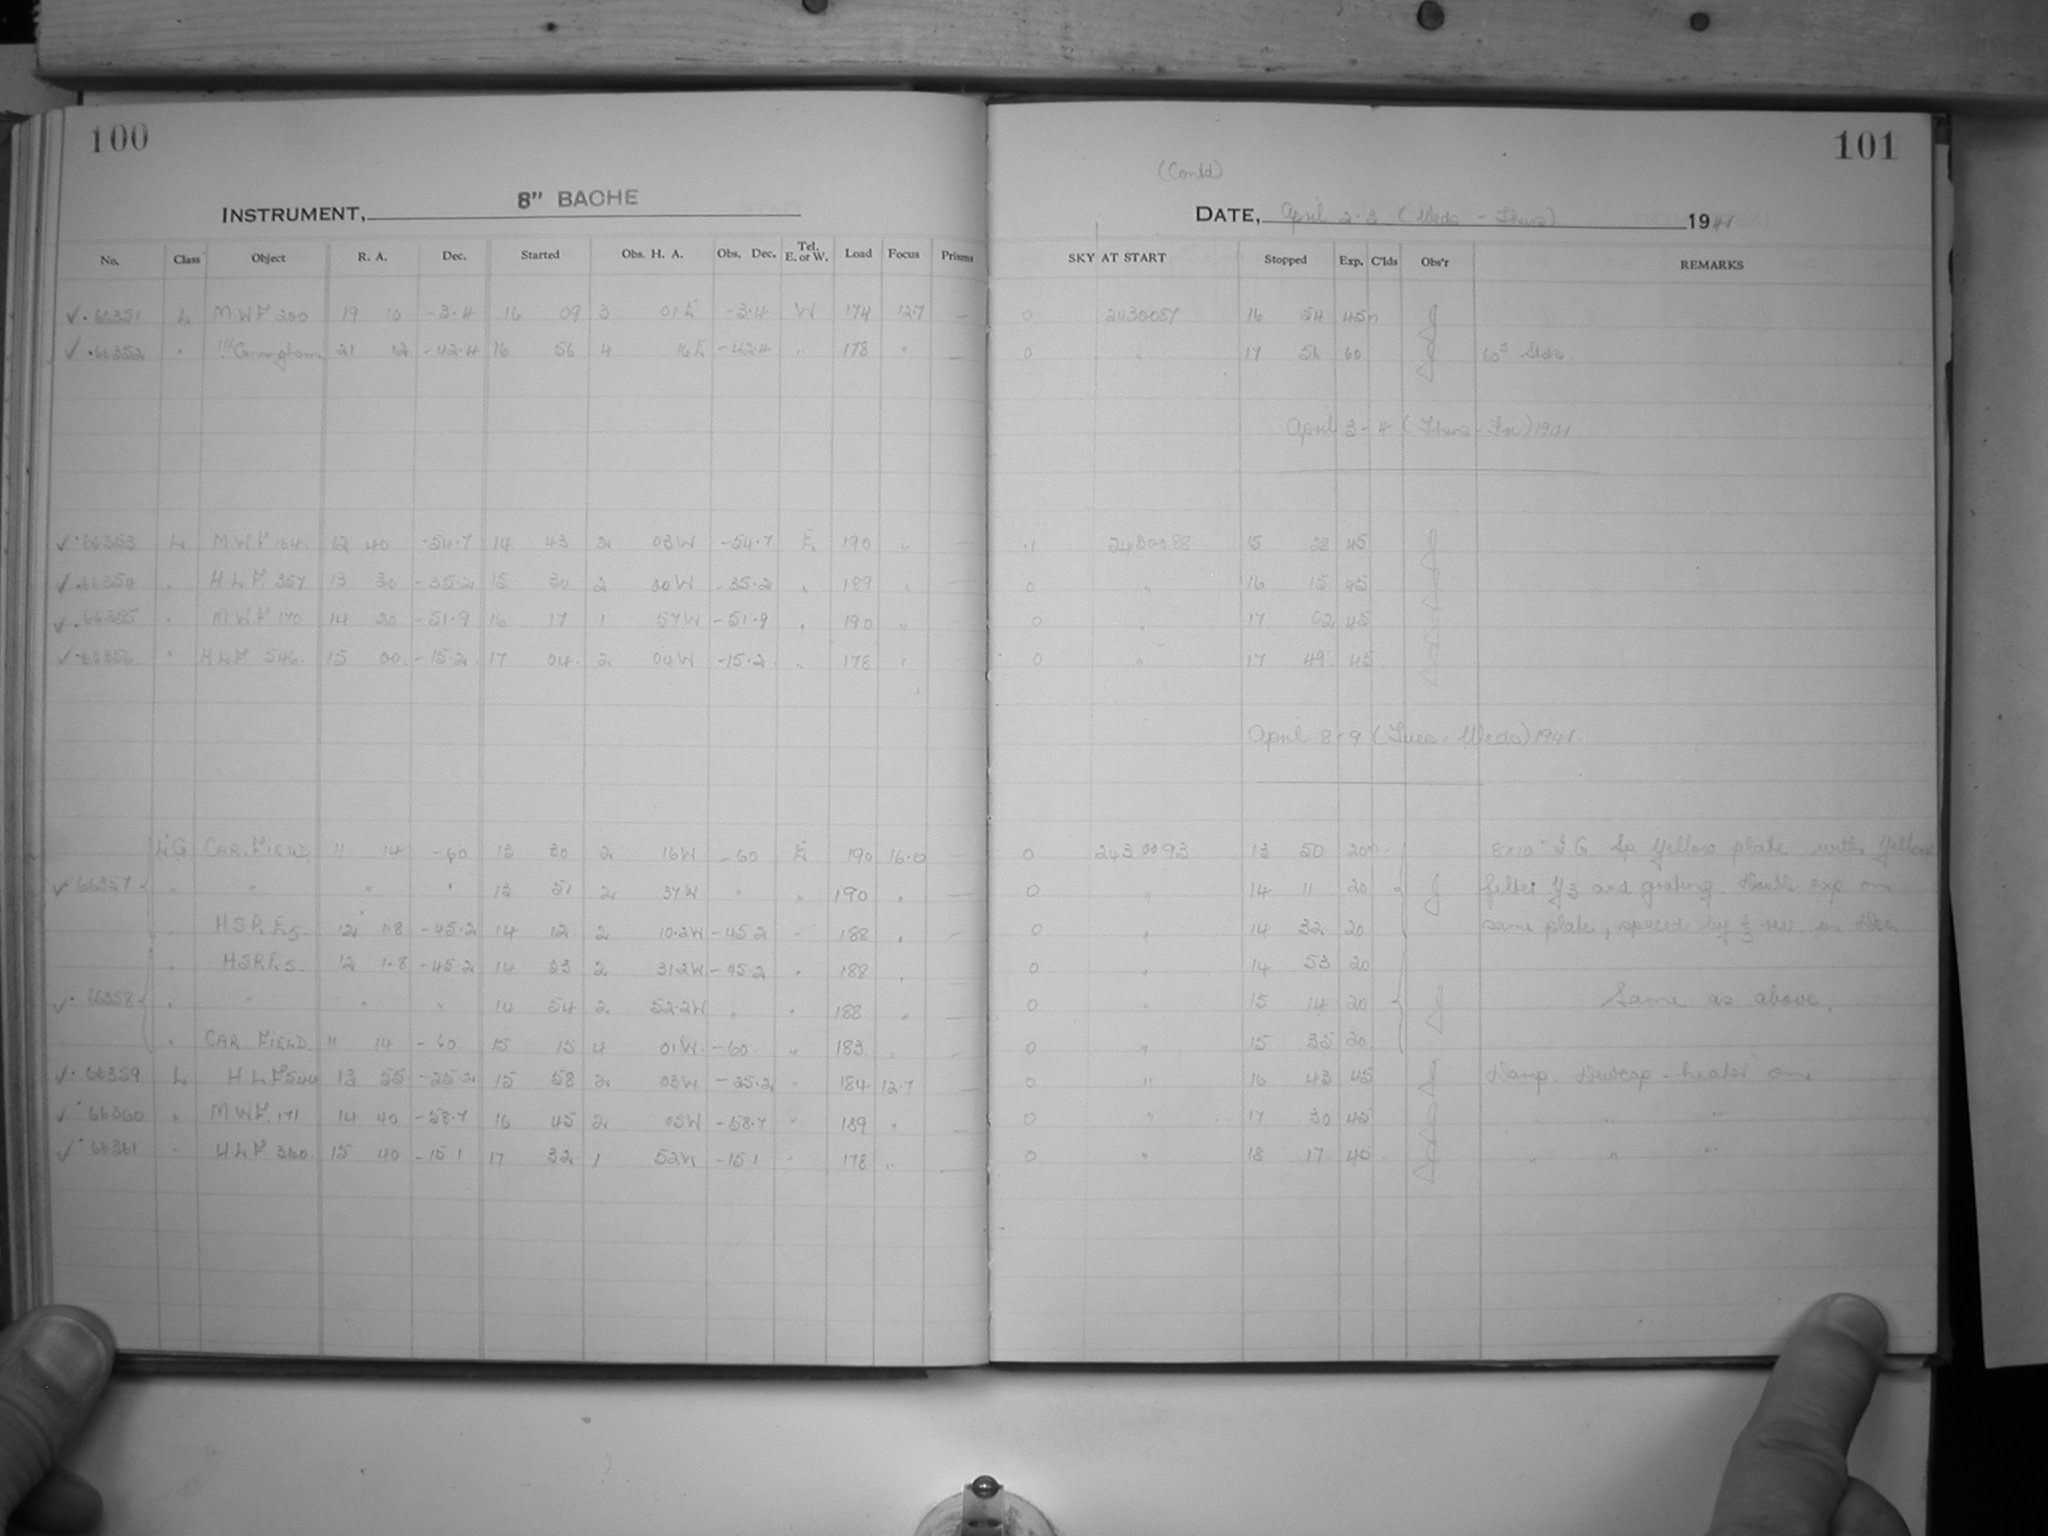 100
INSTRUMENT, 8" BACHE
No. Class Object R. A. Dec. Started Obs. H. A. Obs. Dec. Tel. E. or W. Load Focus Prisms
✓ · 66351 L MWF 200 19 10 -3.4 16 09 3 01 E -3.4 W 174 12.7 —
✓ · 66352 " !!!Cunningham 21 12 -42.4 16 56 4 16 E -42.4 " 178 "
✓ · 66353 L MWF 164 12 40 -54.7 14 43 2 03 W -54.7 E 190 "
✓ · 66354 " HLF 357 13 30 -35.2 15 30 2 00 W -35.2 " 189 "
✓ · 66355 " MWF 170 14 20 -51.9 16 17 1 57 W -51.9 " 190 "
✓ · 66356 " HLF 546 15 00 -15.2 17 04 2 04 W -15.2 " 178 "
CAR. FIELD " 14 -60 13 30 2 16 W -60 E 190 16.0 —
✓ · 66357 " " " " 13 51 2 37 W " " 190 "
" HSR E5 12 1.8 -45.2 14 12 2 10.2 W -45.2 " 188 "
" HSR E5 12 1.8 -45.2 14 33 2 31.2 W -45.2 " 188 "
✓ · 66358 " " " " 14 54 2 52.2 W " " 188 "
" CAR FIELD " 14 -60 15 15 4 01 W -60 " 183 "
✓ · 66359 L HLF 544 13 55 -25.2 15 58 2 03 W -25.2 " 184 12.7 —
✓ · 66360 " MWF 171 14 40 -58.7 16 45 2 05 W -58.7 " 189 "
✓ · 66361 " HLF 360 15 40 -15.1 17 32 1 52 W -15.1 " 178 "
101
(Contd)
DATE, April 2-3 (Weds - Thurs) 1941
SKY AT START Stopped Exp. C'lds Obs'r REMARKS
0 2430087 16 54 45m J
0 " 17 56 60 J 60s Stds
April 3-4 (Thurs - Fri) 1941
.1 2430088 15 28 45 J
0 " 16 15 45
0 " 17 02 45
0 " 17 49 45
April 8-9 (Tues - Weds) 1941.
0 2430093 13 50 20m 8x10" I G Sp Yellow plate with Yellow
0 " 14 11 20 J filter Y3 and grating. Double exp on
0 " 14 32 20 same plate, spaced by in Dec.
0 " 14 53 20
0 " 15 14 20 J Same as above.
0 " 15 35 20
0 " 16 43 45 J Damp. Dewcap-heater on
0 " 17 30 45 " " "
0 " 18 17 45 " " "